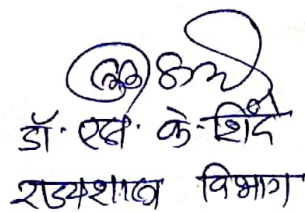 डॉ. एस. के. शिंदे
राज्यशास्त्र विभाग